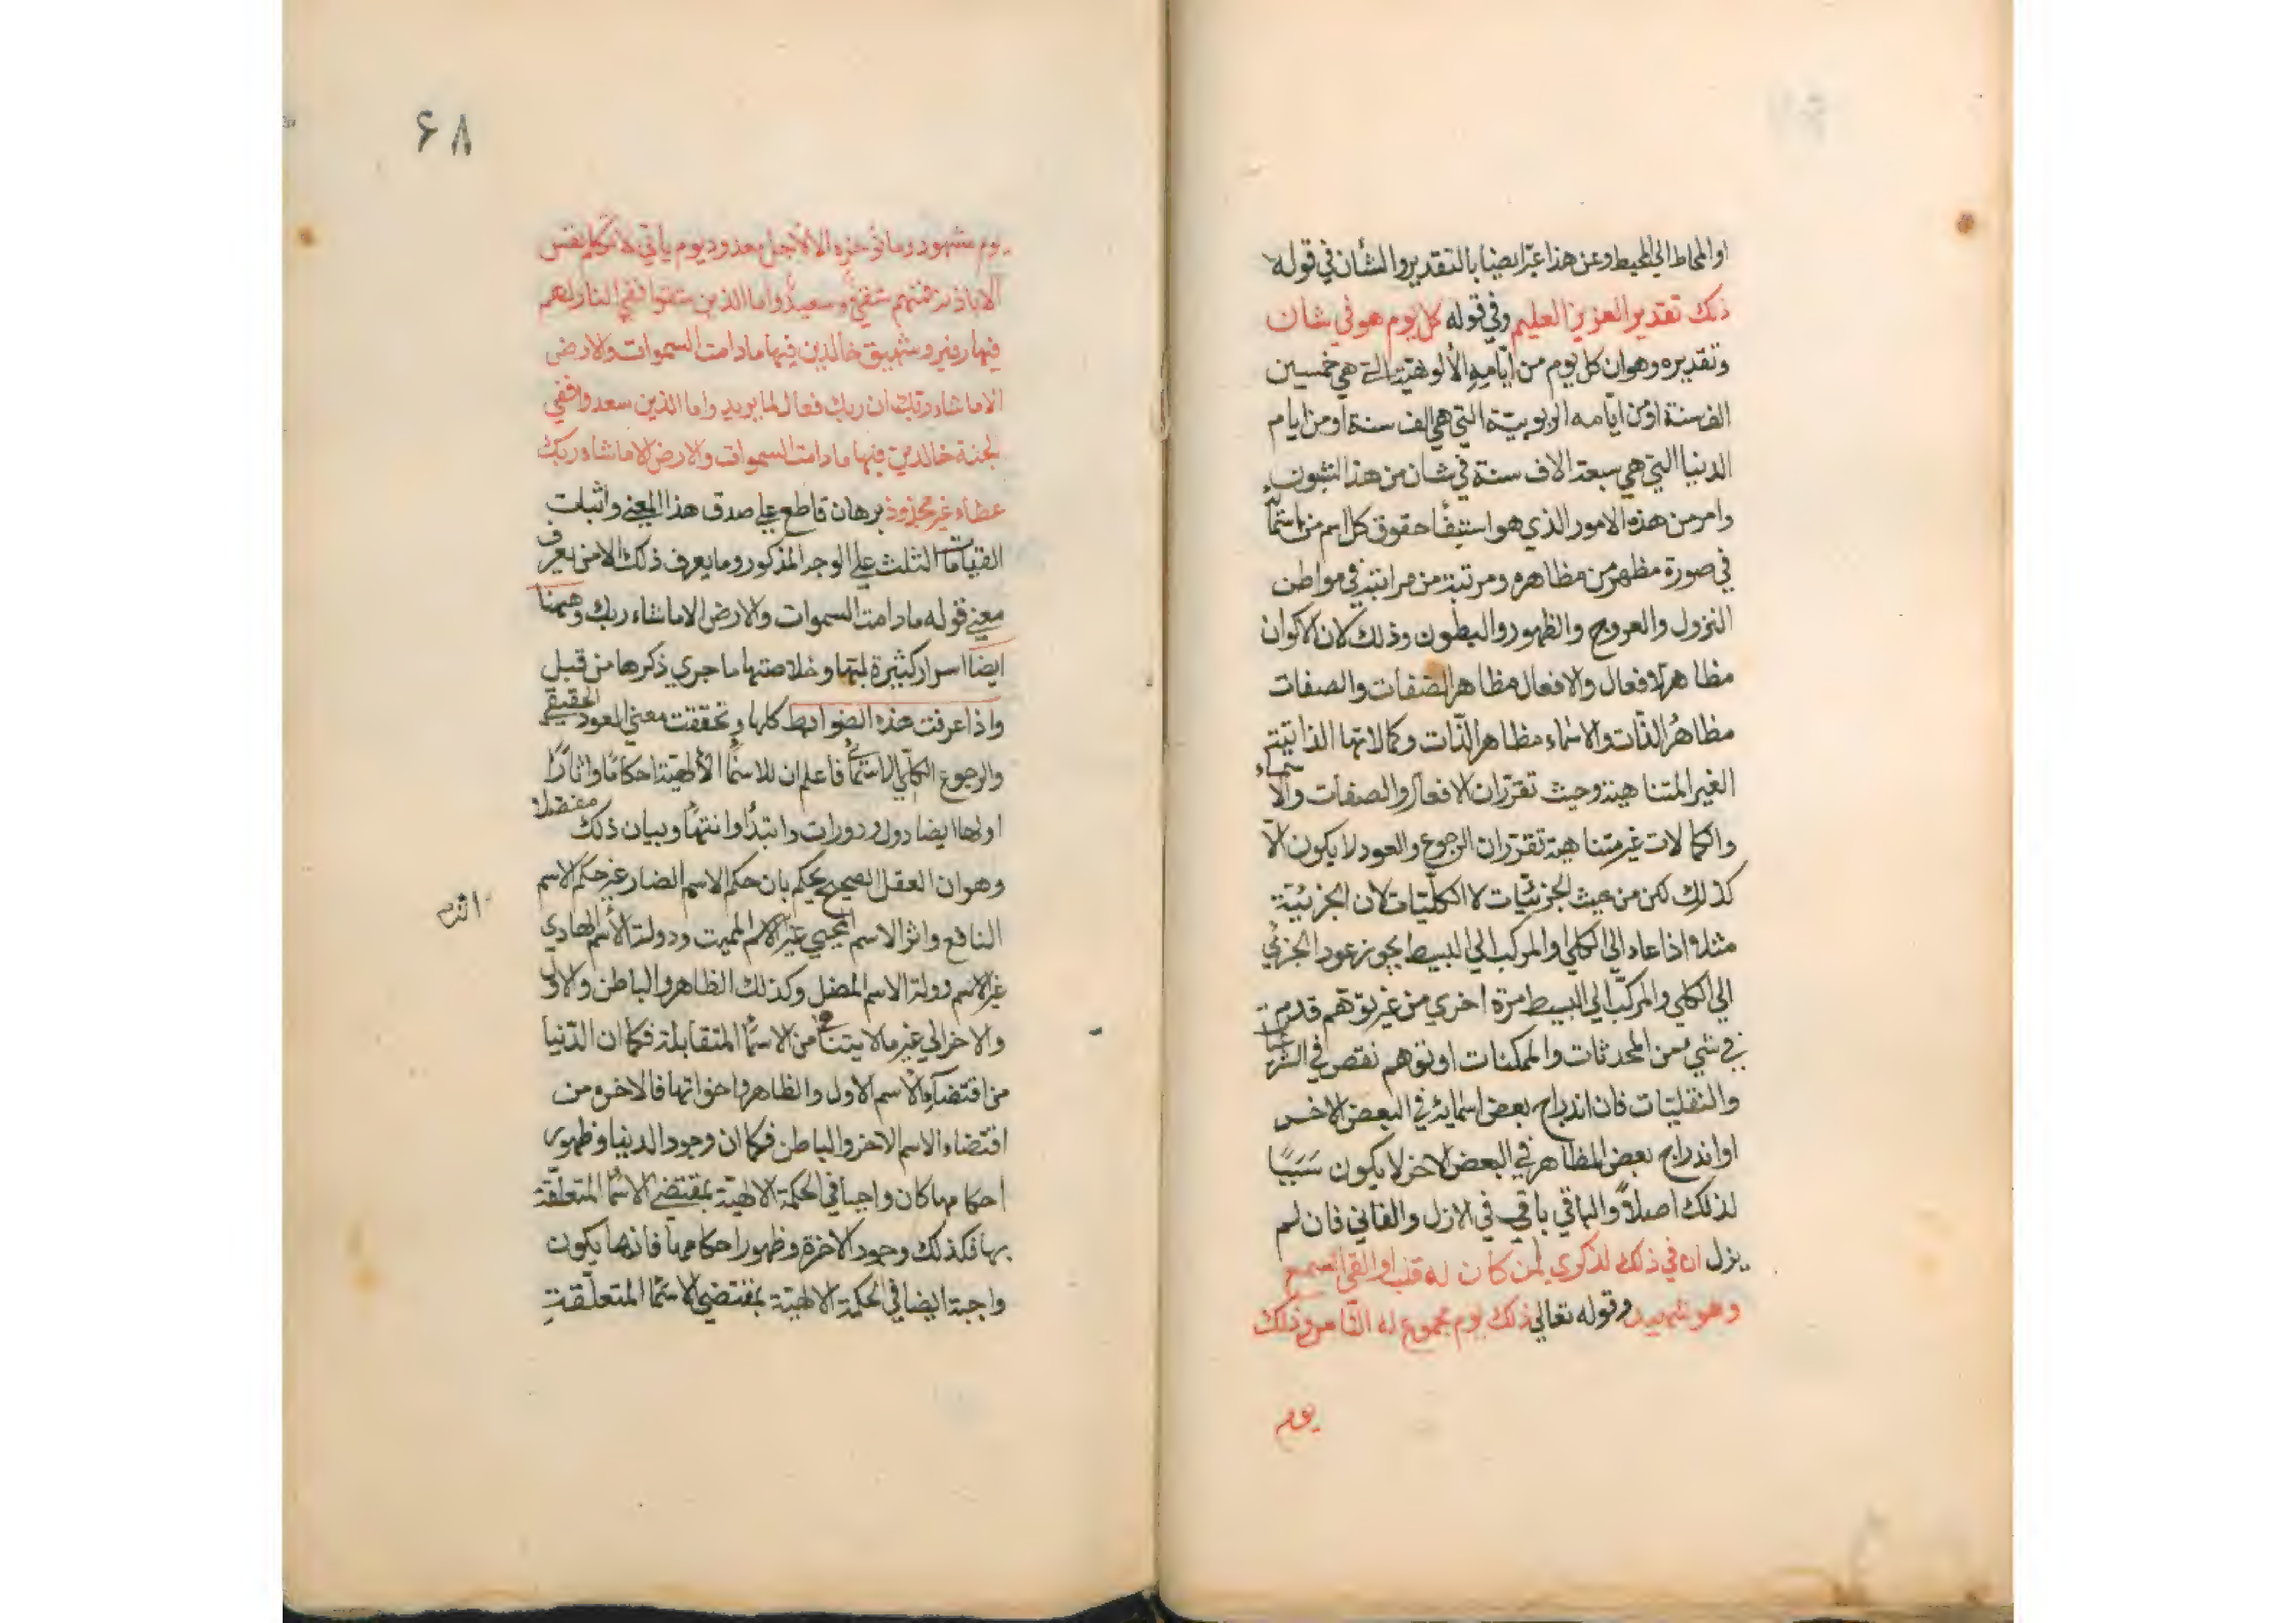 او المحاط الي المحيط وعن هذا عبّر ايضا بالتقدير والشأن في قوله
ذلك تقدير العزيز العليم وفي قوله كل يوم هو في شان
وتقديره وهو ان كل يوم من ايّامه الألوهيّة التي هي خمسين
الف سنة او من ايّامه الربوبيّة التي هي الف سنة او من ايام
الدنيا التي هي سبعة الاف سنة في شان من هذا الشؤن
وامر من هذه الامور الذي هو استيفاء حقوق كل اسم من اسمائه
في صورة مظهر من مظاهره ومرتبة من مراتبه في مواطن
النزول والعروج والظهور والبطون وذلك لان الاكوان
مظاهر الافعال والافعال مظاهر الصفات والصفات
مظاهر الذّات والاسماء مظاهر الذّات وكمالاتها الذاتية
الغير المتناهية وحيث تقرّر ان الافعال والصفات والاسماء
والكمالات غير متناهية تقرّر ان الرجوع والعود لا يكون الّا
كذلك لكن من حيث الجزئيّات لا الكلّيّات لان الجزئيّة
مثلا اذا عاد الي الكلي او المركب الي البسيط يجوز عود الجزئي
الي الكلي والمركّب الي البسيط مرّة اخري من غير توهّم قدم
في شي من المحدثات والممكنات او توهم نقص في الشرعيات
والنقليّات فان اندراج بعض اسمائه في البعض الاخر
او اندراج بعض المظاهر في البعض الاخر لا يكون سَبَبًا
لذلك اصلاً والباقي باقي في الازل والفاني فان لم
يزل ان في ذلك لذكري لمن كان له قلب او القي السمع
وهو شهيد وقوله تعالي ذلك يوم مجموع له النّاس وذلك
يوم
۶۸
يوم مشهود وما نؤخره الا لأجل معدود يوم ياتي لا تكلم نفس
الا باذنه فمنهم شقيّ وسعيدٌ واما الذين شقوا ففي النار لهم
فيها زفير وشهيق خالدين فيها ما دامت السموات والارض
الا ما شاء ربّك ان ربك فعال لما يريد واما الذين سعدوا ففي
الجنة خالدين فيها ما دامت السموات والارض الا ما شاء ربك
عطاء غير مجذوذ برهان قاطع علي صدق هذا المعني واثبات
القيامات الثلث علي الوجه المذكور وما يعرف ذلك الا من يعرف
معني قوله ما دامت السموات والارض الا ما شاء ربك وههنا
ايضا اسرار كثيرة وخلاصتها ما جري ذكرها من قبل
واذا عرفت هذه الضوابط كلها وتحققت معني العود الحقيقي
والرجوع الكلّي الاسمائي فاعلم ان للاسماء الألهيّة احكامًا واثارًا
اولها ايضا دول ودورات وابتداء وانتهاء وبيان ذلك مفصلا
وهو ان العقل الصحيح يحكم بان حكم الاسم الضار غير حكم الاسم
اثر
النافع واثر الاسم المحيي غير الاسم المميت ودولة الأسم الهادي
غير الاسم دولة الاسم المضل وكذلك الظاهر والباطن والاول
والاخر الي غير ما لا يتناهي من الاسماء المتقابلة فكما ان الدّنيا
من اقتضاء الاسم الاول والظاهر واخواتها فالاخرة من
اقتضاء الاسم الاخر والباطن فكما ان وجود الدنيا وظهور
احكامها كان واجبا في الحكمة الالهيّة بمقتضي الاسماء المتعلّقة
بها فكذلك وجود الاخرة وظهور احكامها فانها يكون
واجبة ايضا في الحكمة الالهيّة بمقتضي الاسماء المتعلّقة